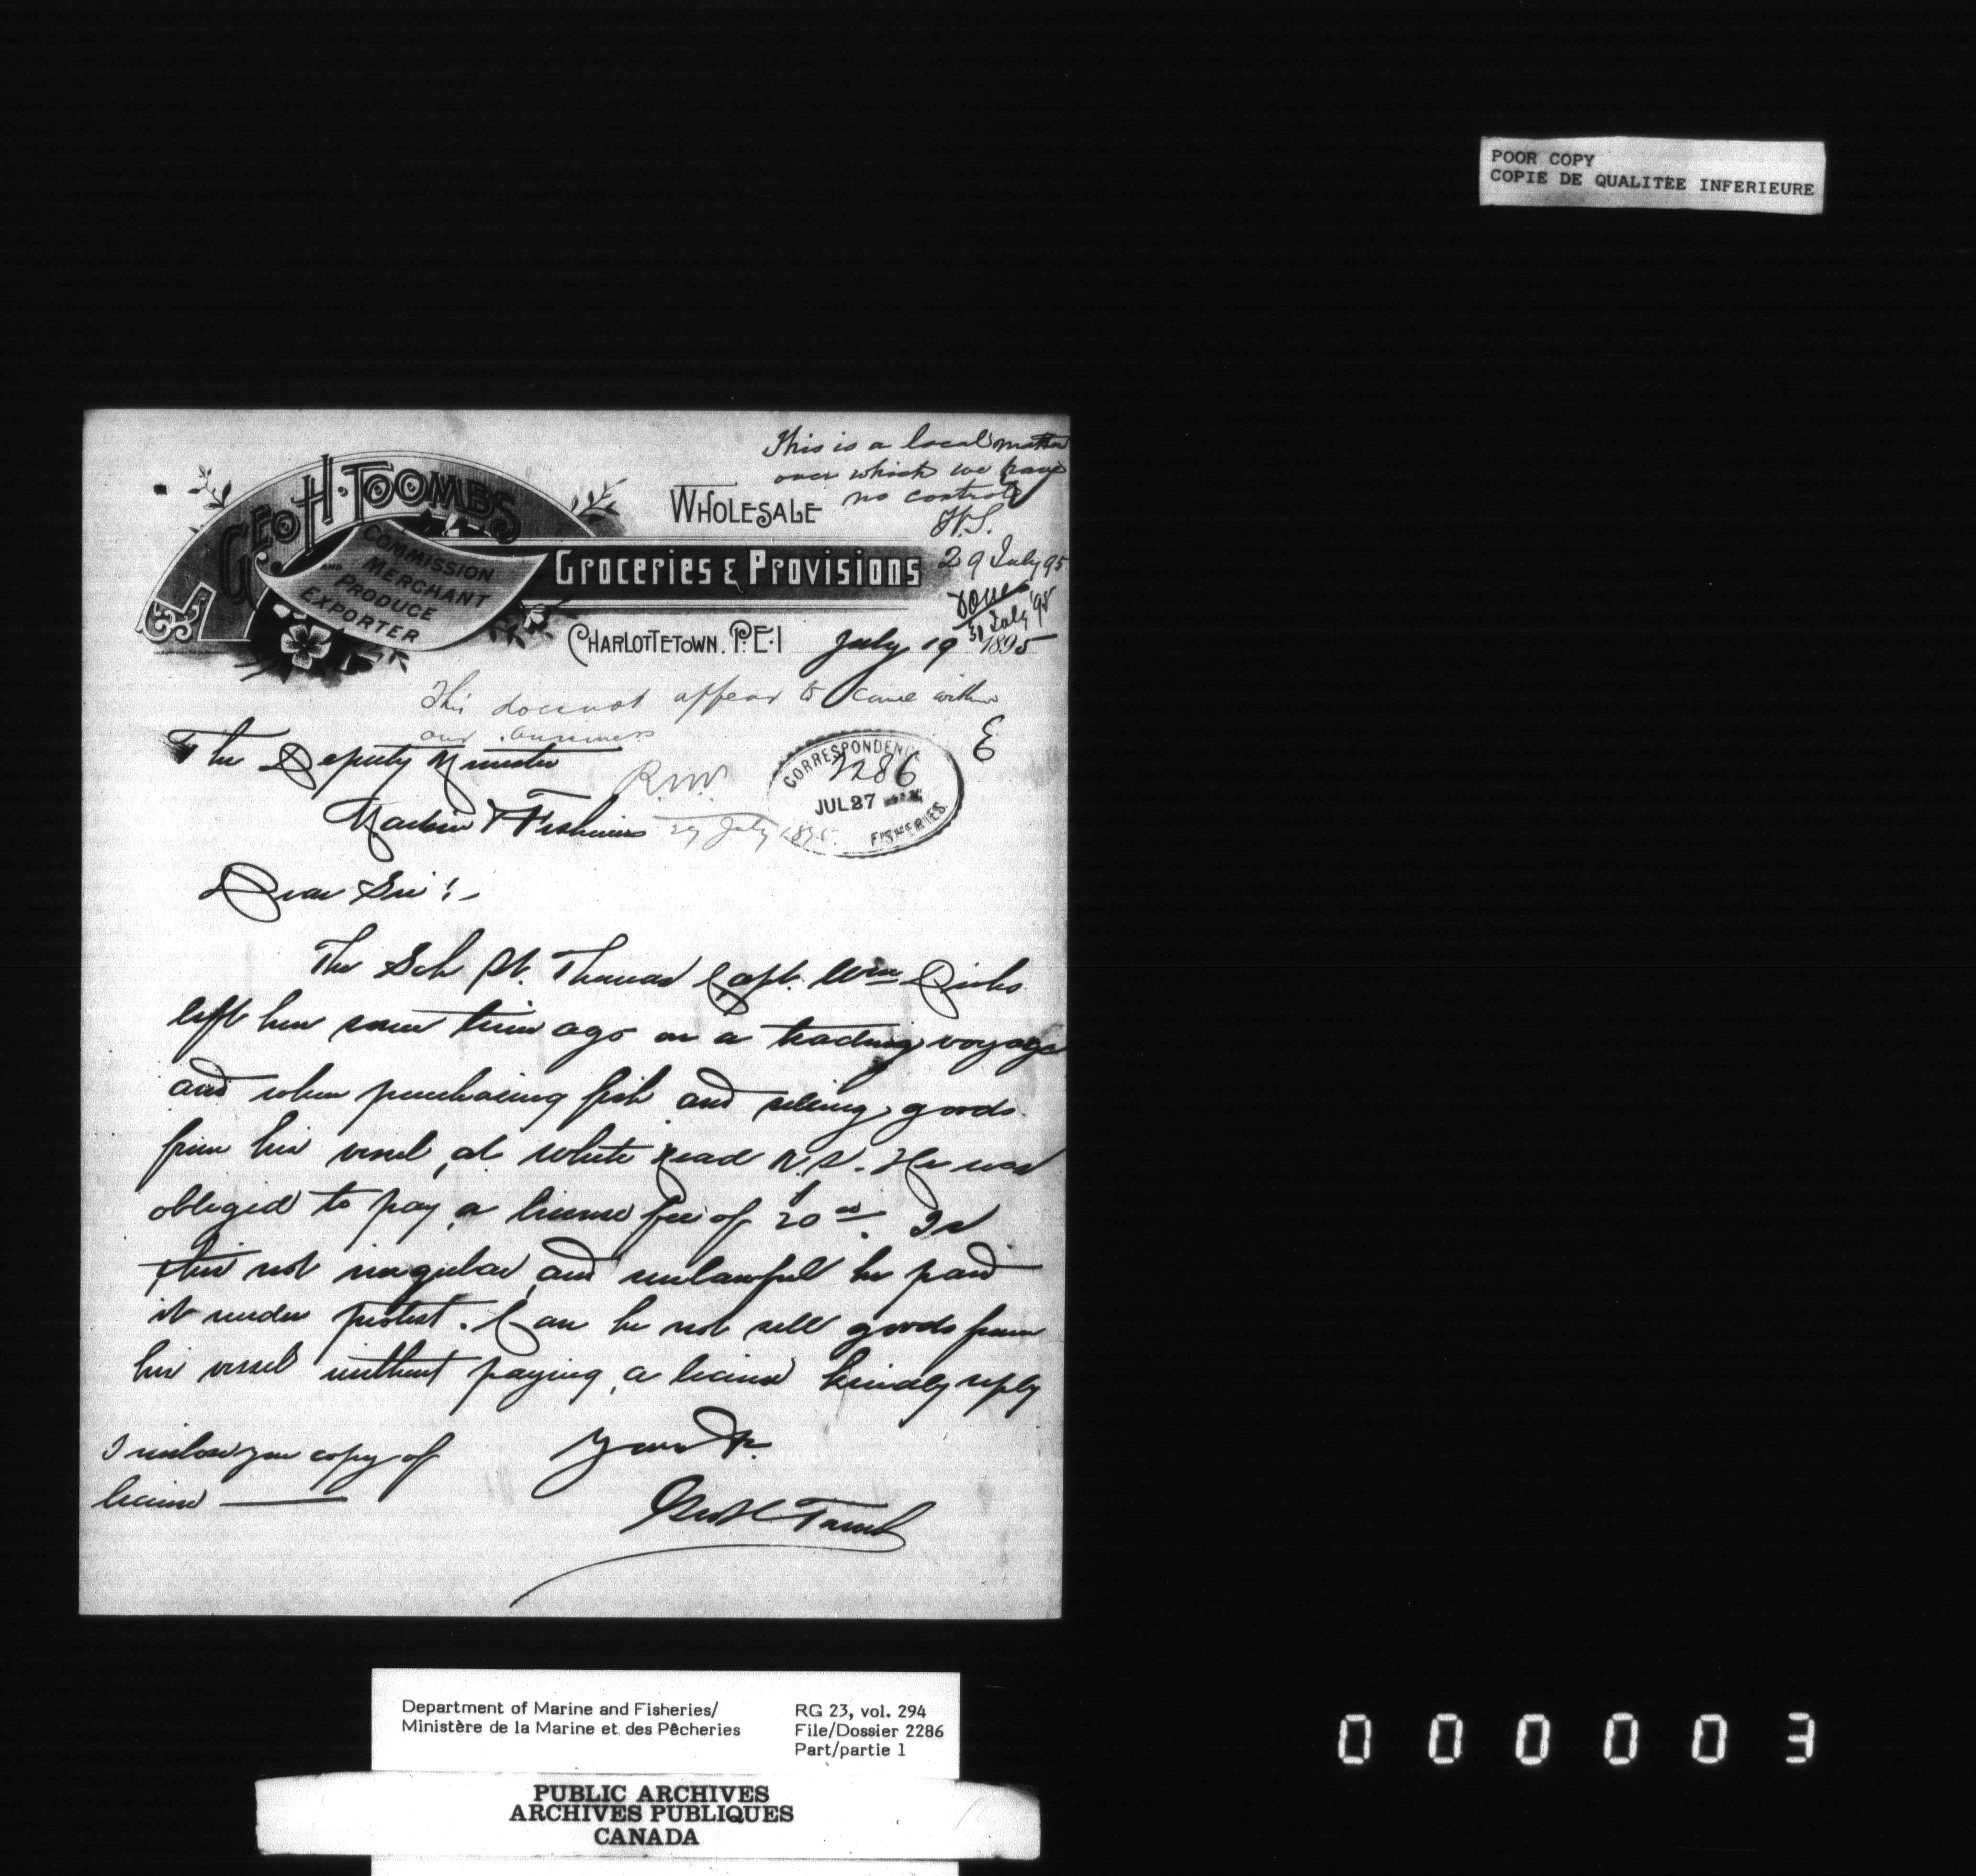 POOR COPY
COPIE DE QUALITÉE INFERIEURE
This is a local matter
over which we have
no control
29 July 95
Done
31 July '95
GEO. H. TOOMBS
COMMISSION
MERCHANT
AND PRODUCE
EXPORTER
WHOLESALE
GROCERIES & PROVISIONS
CHARLOTTETOWN. P.E.I July 19 1895
This does not appear to come within
our business
R.W.
29 July 1895
E
CORRESPONDENCE
2286
JUL 27
FISHERIES.
The Deputy Minister
Marine & Fisheries
Dear Sir:-
The Sch St. Thomas Capt. Wm Dicks
left here some time ago on a trading voyage
and when purchasing fish and selling goods
from his vessel, at White Head N.S. He was
obliged to pay a license fee of $20.00. Is
this not irregular and unlawful he paid
it under protest. Can he not sell goods from
his vessel without paying a license kindly reply
Yours &.
I enclose you copy of
license
Geo H Toombs
Department of Marine and Fisheries/
Ministère de la Marine et des Pêcheries
RG 23, vol. 294
File/Dossier 2286
Part/partie 1
PUBLIC ARCHIVES
ARCHIVES PUBLIQUES
CANADA
000003